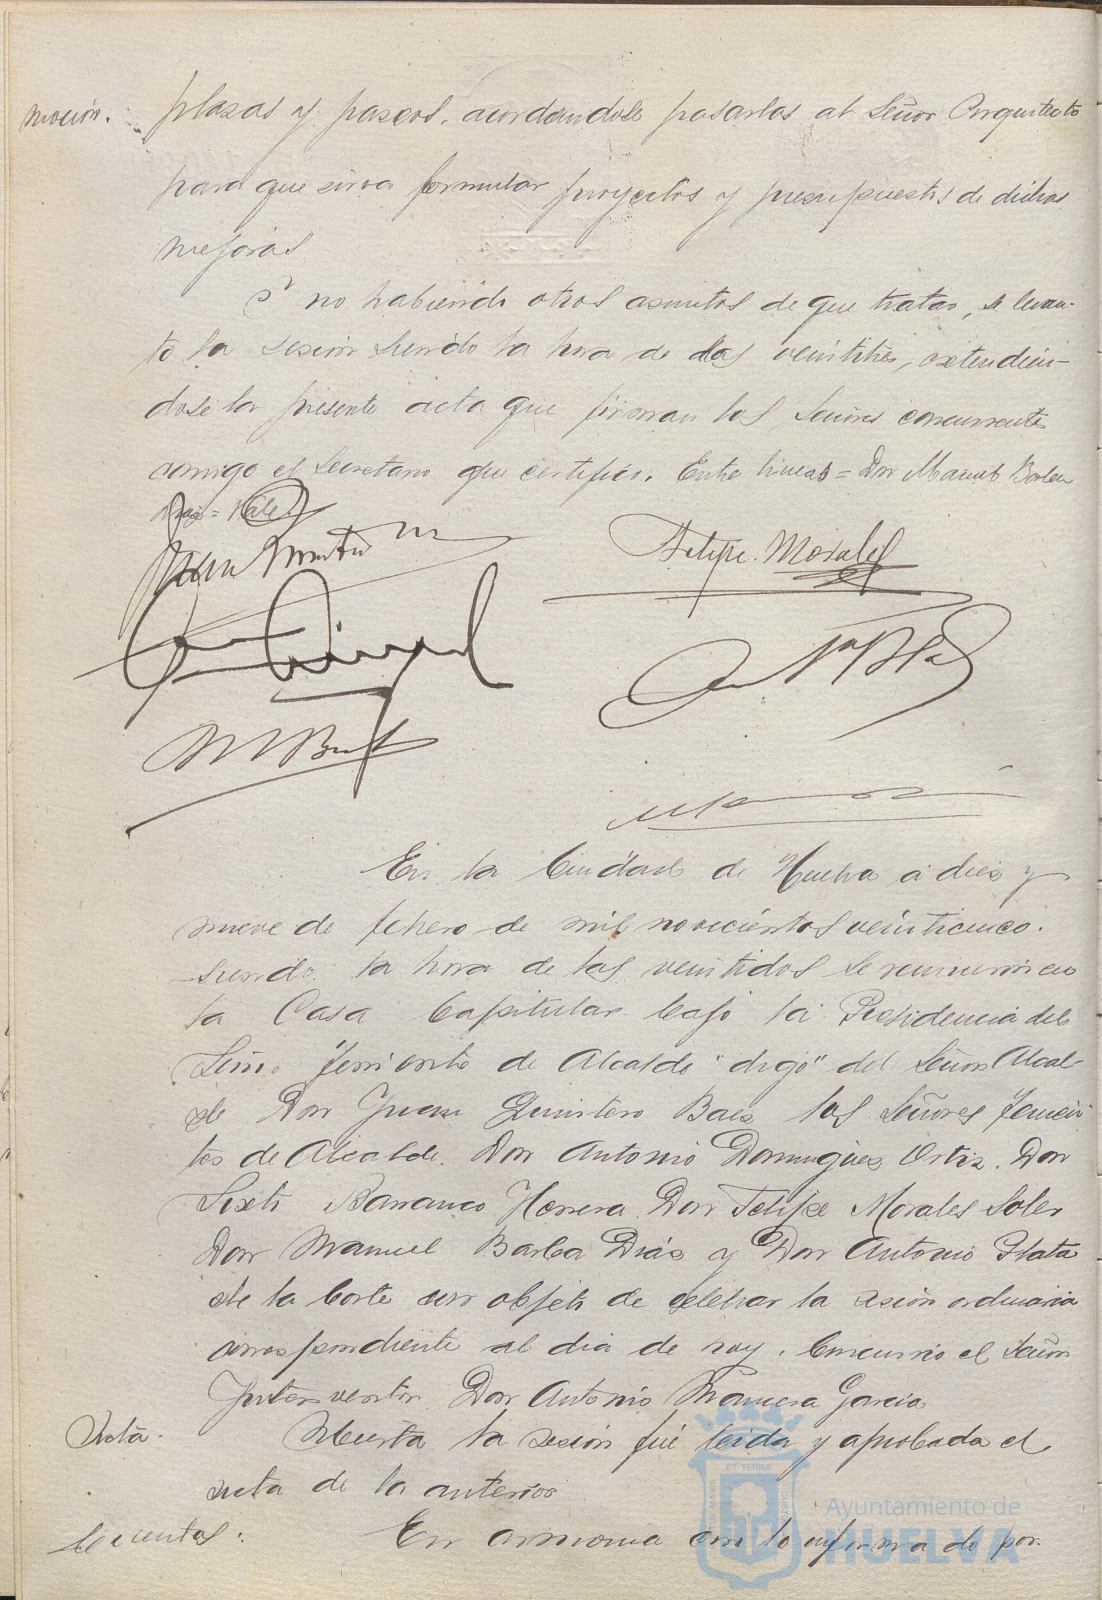 moción. plazas y paseos, acordandose pasarlos al Señor Arquitecto
para que sirva formular proyectos y presupuestos de dichas
mejoras
Y no habiendo otros asuntos de que tratar, se levan-
tó la sesión siendo la hora de las veintitres, extendien-
dose la presente acta que firman los Señores concurrentes
conmigo el Secretario que certifico. Entre lineas = Don Manuel Barba
Diaz = Vale
Felipe Morales
En la Ciudad de Huelva a diez y
nueve de febrero de mil novecientos veinticinco.
siendo la hora de las veintidos se reunieron en
la Casa Capitular bajo la Presidencia del
Señor Teniente de Alcalde "digo" del Señor Alcal-
de Don Juan Quintero Baez los Señores Tenien-
tes de Alcalde. Don Antonio Dominguez Ortiz. Don
Sixto Barranco Herrera Don Felipe Morales Soler
Don Manuel Barba Diáz y Don Antonio Plata
de la Corte con objeto de celebrar la sesión ordinaria
correspondiente al dia de hoy. Concurrió el Señor
Interventor Don Antonio Mancera Garcia
Acta. Abierta la sesión fué leida y aprobada el
acta de la anterior
Cuentas: En armonia con lo informado por
Ayuntamiento de
HUELVA